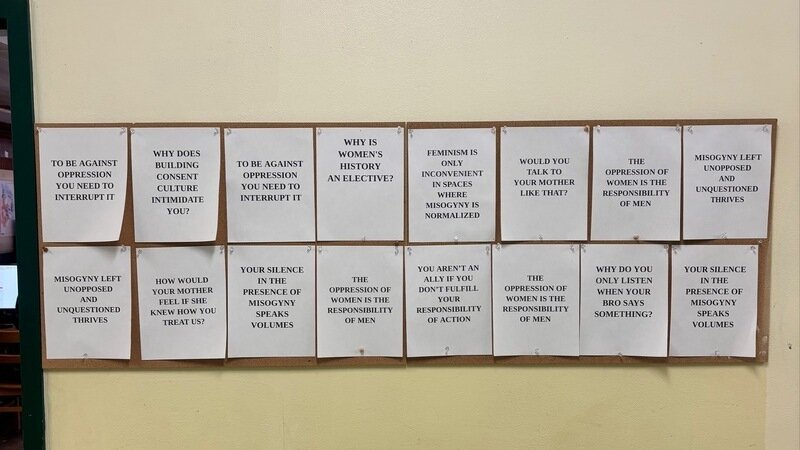 TO BE AGAINST
OPPRESSION
YOU NEED TO
INTERRUPT IT
WHY DOES
BUILDING
CONSENT
CULTURE
INTIMIDATE
YOU?
TO BE AGAINST
OPPRESSION
YOU NEED TO
INTERRUPT IT
WHY IS
WOMEN'S
HISTORY
AN ELECTIVE?
FEMINISM IS
ONLY
INCONVENIENT
IN SPACES
WHERE
MISOGYNY IS
NORMALIZED
WOULD YOU
TALK TO
YOUR MOTHER
LIKE THAT?
THE
OPPRESSION OF
WOMEN IS THE
RESPONSIBILITY
OF MEN
MISOGYNY LEFT
UNOPPOSED
AND
UNQUESTIONED
THRIVES
MISOGYNY LEFT
UNOPPOSED
AND
UNQUESTIONED
THRIVES
HOW WOULD
YOUR MOTHER
FEEL IF SHE
KNEW HOW YOU
TREAT US?
YOUR SILENCE
IN THE
PRESENCE OF
MISOGYNY
SPEAKS
VOLUMES
THE
OPPRESSION OF
WOMEN IS THE
RESPONSIBILITY
OF MEN
YOU AREN'T AN
ALLY IF YOU
DON'T FULFILL
YOUR
RESPONSIBILITY
OF ACTION
THE
OPPRESSION OF
WOMEN IS THE
RESPONSIBILITY
OF MEN
WHY DO YOU
ONLY LISTEN
WHEN YOUR
BRO SAYS
SOMETHING?
YOUR SILENCE
IN THE
PRESENCE OF
MISOGYNY
SPEAKS
VOLUMES